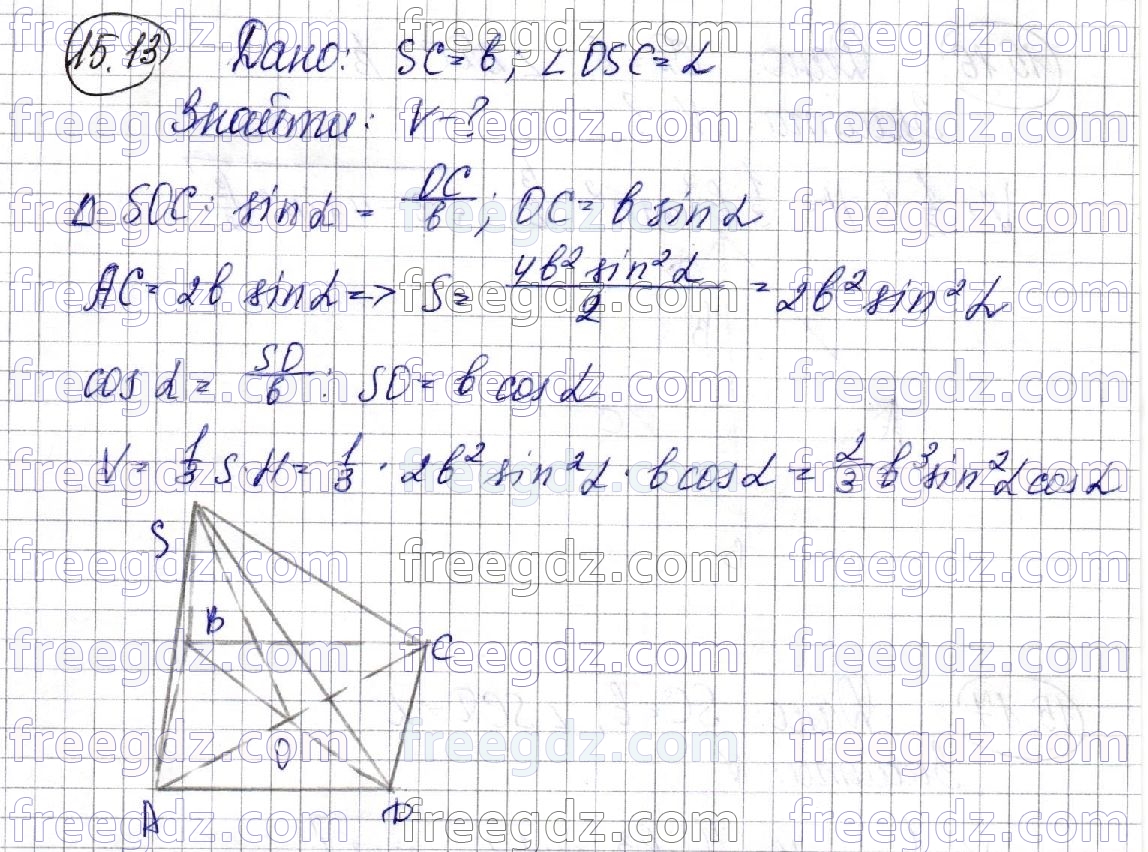 15.13 Дано: SC = b; ∠OSC = α
Знайти: V - ?
Δ SOC: sin α = OC/b; OC = b sin α
AC = 2b sin α => S = 4b² sin² α / 2 = 2b² sin² α
cos α = SO/b : SO = b cos α
V = 1/3 S·H = 1/3 · 2b² sin² α · b cos α = 2/3 b³ sin² α cos α
S
B
C
O
A
D
freegdz.com freegdz.com freegdz.com
freegdz.com freegdz.com freegdz.com
freegdz.com freegdz.com freegdz.com
freegdz.com freegdz.com freegdz.com
freegdz.com freegdz.com freegdz.com
freegdz.com freegdz.com freegdz.com
freegdz.com freegdz.com freegdz.com
freegdz.com freegdz.com freegdz.com
freegdz.com freegdz.com freegdz.com
freegdz.com freegdz.com freegdz.com